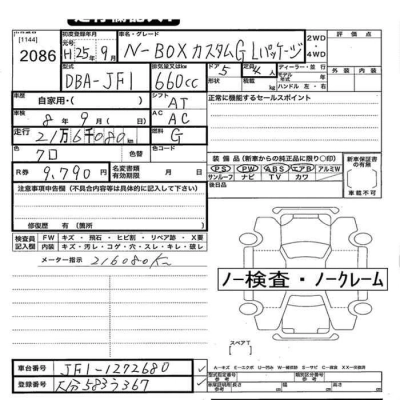 [1144]
2086
初度登録年月
車名・グレード
H25年9月
N-BOXカスタムG Lパッケージ
2WD・4WD
評価点
外装 内装
型式
DBA-JF1
排気量又はkw
660cc
ドア
5
定員
4人
ディーラー・並行
モデル年式
ハンドル 左・右
年
車歴
自家用・( )
シフト
AT
正常に機能するセールスポイント
車検
8年9月
AC
走行
21万6千080km
燃料
G
色
クロ
色替
色コード
装備品(新車からの純正品に限り○印)
PS PW ABS エアB アルミW
サンルーフ ナビ TV カワ
新車保証書の有無
有
車載不可
R券
9,790円
名変書類有効期限
年 月
後日品
注意事項申告欄(不具合内容等は具体的に記入して下さい)
修復歴 有(箇所
検査員記入欄
FW キズ・飛石・ヒビ割・リペア跡・X要
内装 キズ・汚レ・コゲ・穴・スレ・キレ・破レ
メーター指示
216080Km
ノー検査・ノークレーム
スペアT
車台番号
JF1-1272680
登録番号
大分583ラ367